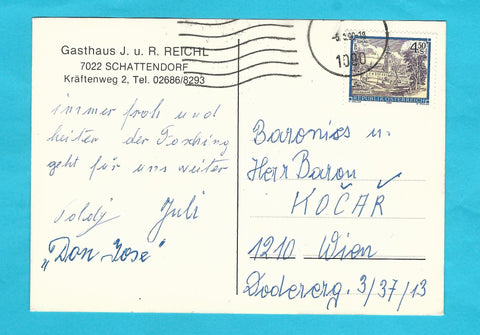 Gasthaus J. u. R. REICHL
7022 SCHATTENDORF
Kräftenweg 2, Tel. 02686/8293
immer froh und
heiter der Fasching
geht für uns weiter
Poldy Juli
"Don Jose"
1090
4.50
REPUBLIK ÖSTERREICH
Baroniss u.
Herr Baron
KOČAŘ
1210 Wien
3/37/13